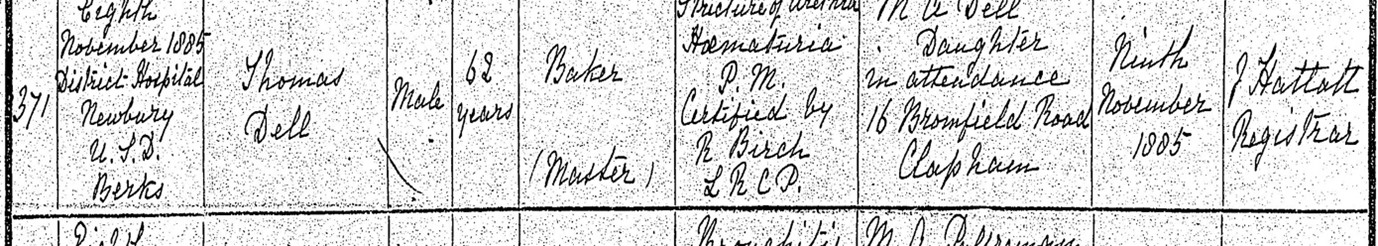 371
Eighth
November 1885
District Hospital
Newbury
U.S.D.
Berks
Thomas
Dell
Male
62
years
Baker
(Master)
Stricture of Urethra
Hæmaturia
P.M.
Certified by
R Birch
L R C P.
M A Dell
Daughter
in attendance
16 Bromfield Road
Clapham
Ninth
November
1885
J Hattatt
Registrar
Eighth
Bronchitis
M A